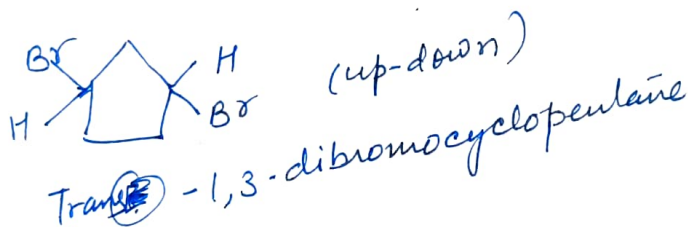 Br
H
H
Br
(up-down)
Trans - 1,3-dibromocyclopentane